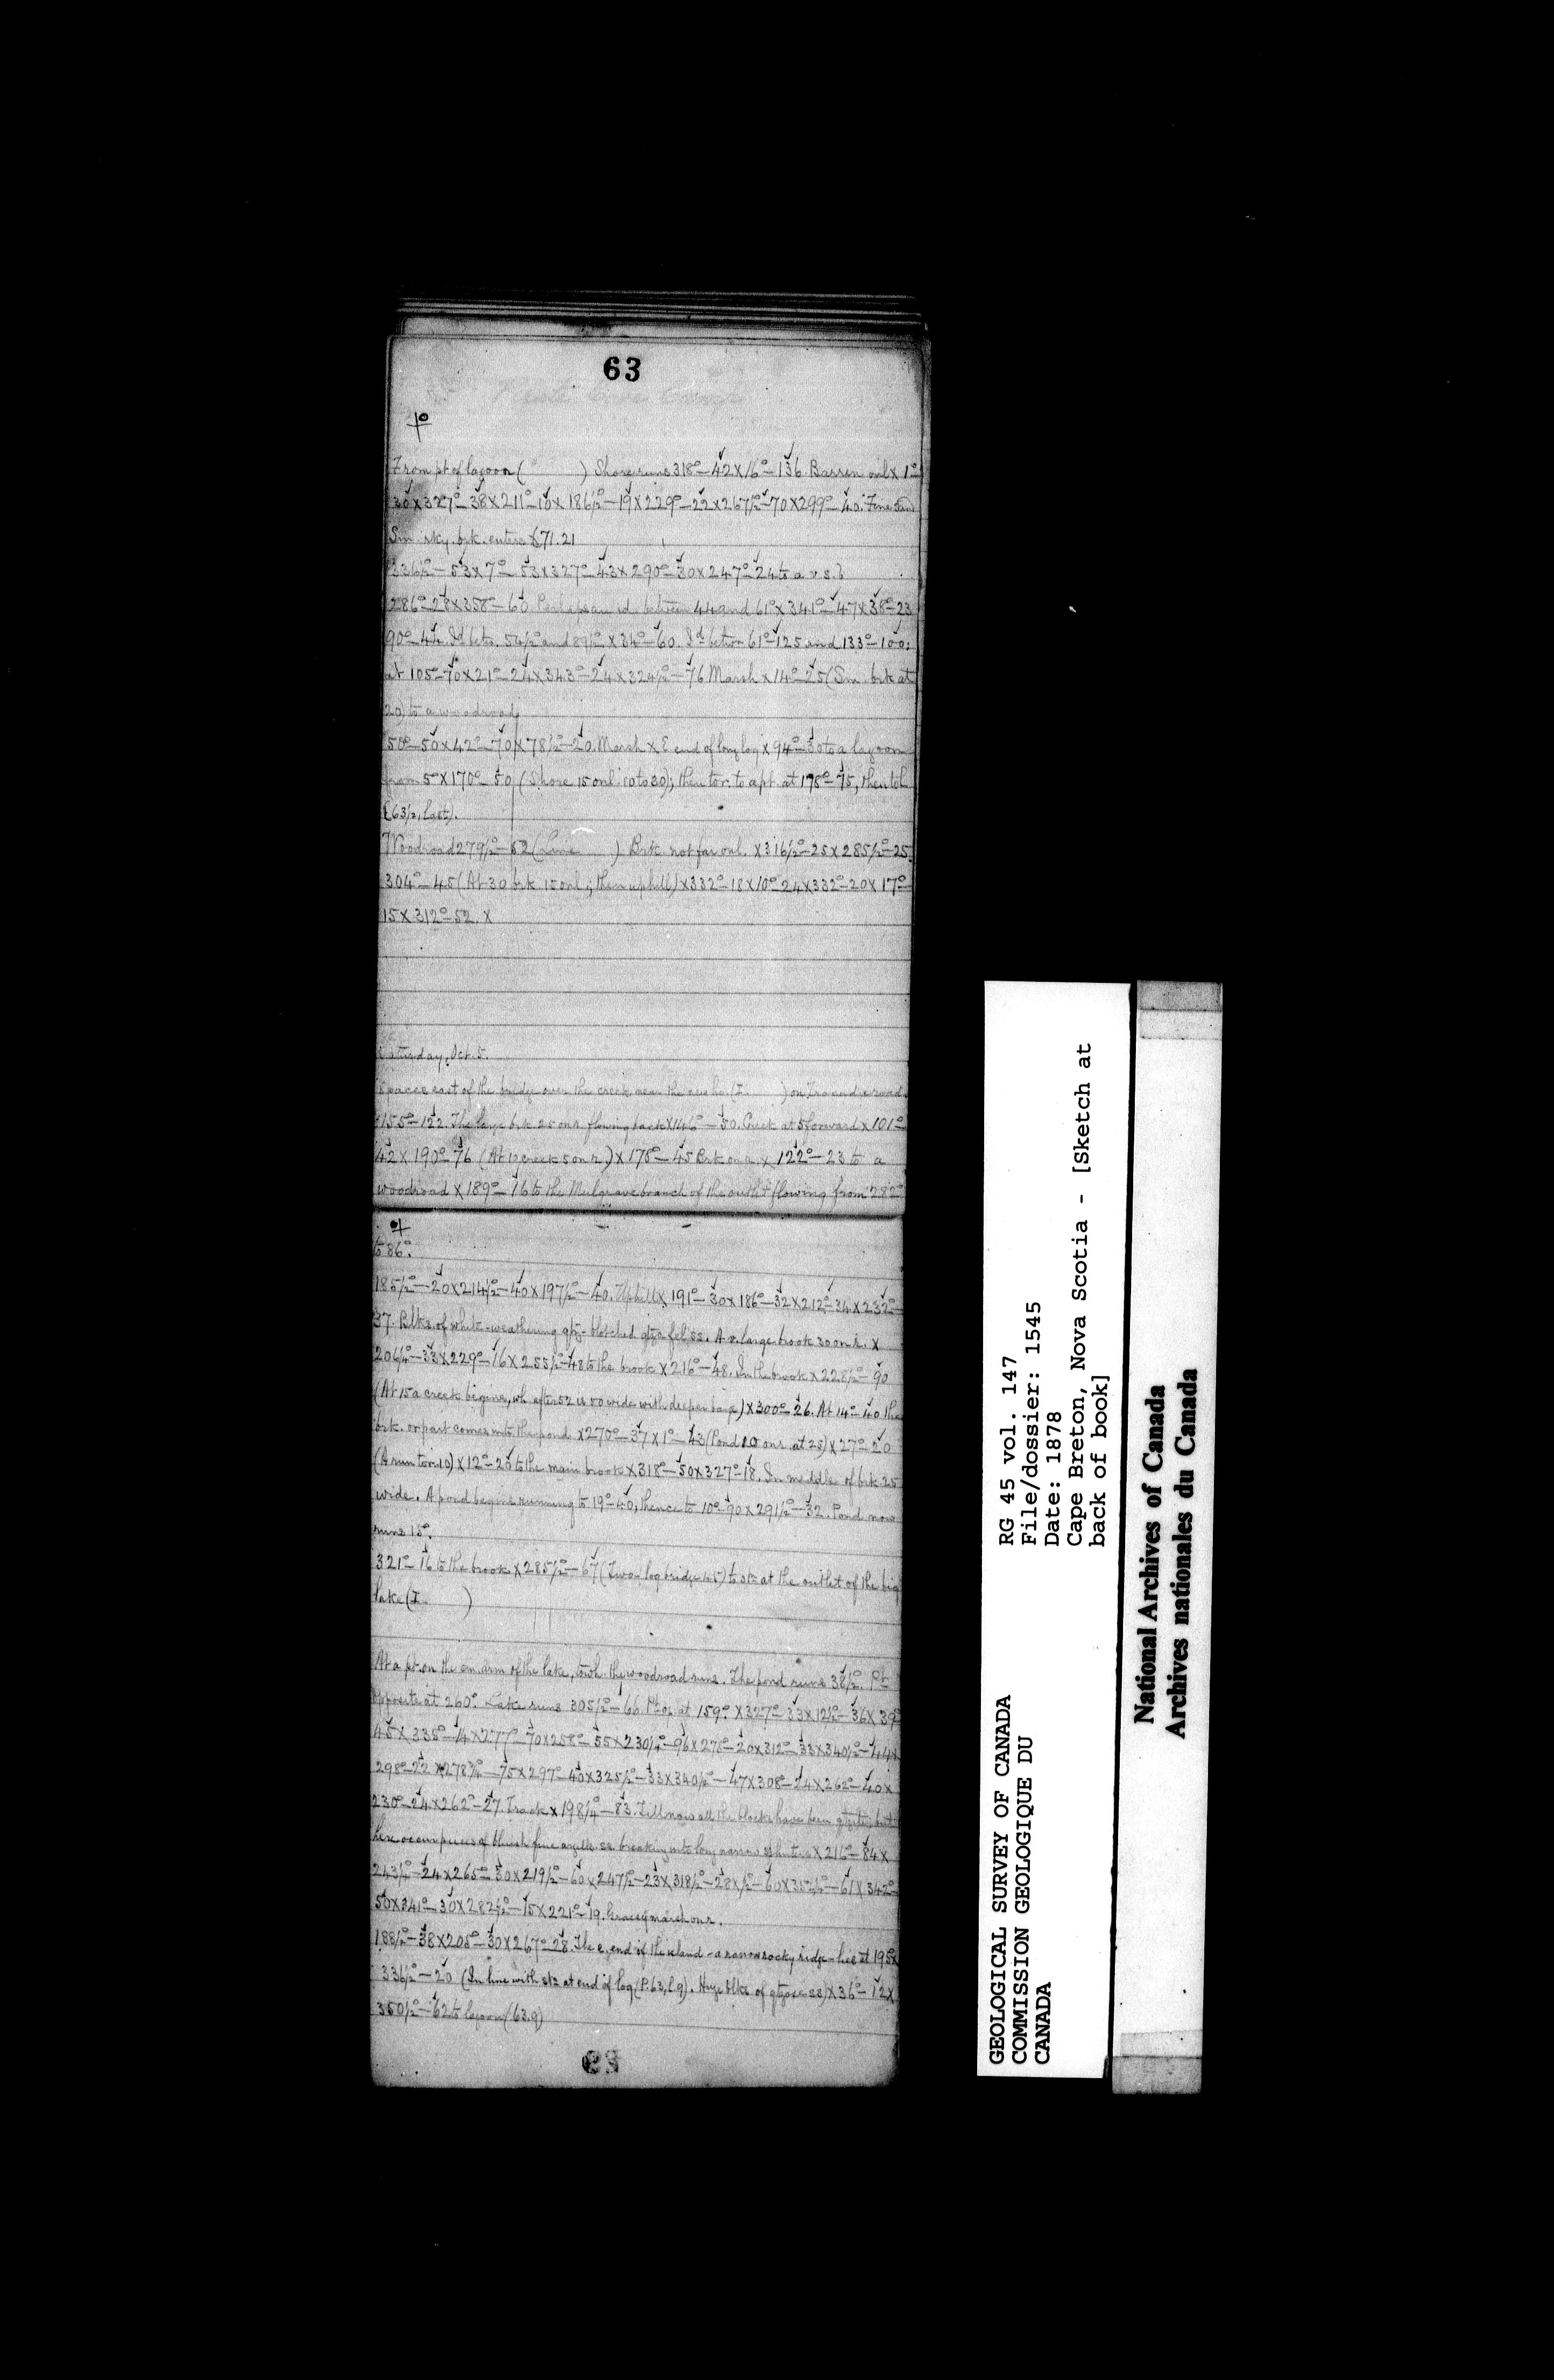 63
From pt of lagoon ( ) Shore runs 318°-42 x 16°-136. Barren onl x 1°-
30 x 327°-38 x 211°-10 x 186½°-19 x 229°-22 x 267½°-70 x 299°-40. Fine sand
Sm rky. brk. enters 71.21
336½°-53 x 7°-53 x 327°-43 x 290°-30 x 247°-24 to a v. s. b
286°-28 x 358°-60. Perhaps an id. between 44 and 61° x 341°-47 x 38°-23
90°-44. Id betw. 54½° and 89½° x 34°-60. Id betwn 61°-125 and 133°-100;
at 105°-70 x 21°-24 x 343°-24 x 324½°-76 Marsh x 14°-25 (Sm. brk at
20) to a woodroad
50°-50 x 42°-70 x 78½°-20. Marsh x E end of long log x 94°-30 to a lagoon
from 5° x 170°-50 (Shore 15 onl 10 to 30); then to r. to a pt. at 178°-75, then to l
(63½, last).
Woodroad 279½°-52 (Line ) Brk not far onl. x 316½°-25 x 285½°-25
304°-45 (At 30 brk 15 onl; then uphill) x 332°-18 x 10°-24 x 332°-20 x 17°-
15 x 312°-52. x
Saturday, Oct. 5.
paces east of the bridge over the creek near the new ho. (I ) on road.
155°-122. The large brk 25 onr. flowing back x 146°-50. Creek at 5 forward x 101°-
42 x 190°-76 (At 12 creek 5 on r.) x 178°-45 Brk on r. x 122°-23 to a
woodroad x 189°-16 to the Mulgrave branch of the outlet flowing from 282°
to 86°.
185½°-20 x 214½°-40 x 197½°-40. Uphill x 191°-30 x 186°-32 x 212°-34 x 232°-
37. Blks. of white-weathering qtz-blotched ss. A v. large brook 30 on r. x
206¼°-33 x 229°-16 x 255½°-48 to the brook x 216°-48. In the brook x 228½°-90
(At 15 a creek begins, wh after 52 is 50 wide with deeper ) x 300°-26. At 14°-40 the
brk. or part comes into the pond x 270°-37 x 1°-43 (Pond 20 onr. at 25) x 27°-20
(A run to r. 10) x 12°-20 to the main brook x 318°-50 x 327°-18. In middle of brk 25
wide. A pond begins running to 19°-40, thence to 10°-90 x 291½°-32. Pond now
runs 15°.
321°-16 to the brook x 285½°-67 (Two-log bridge 45) to stn at the outlet of the big
lake (I )
At a pt. on the arm of the lake, to wh. the woodroad runs. The pond runs 38½°. Pt
opposite at 260°. Lake runs 305½°-66. Pt op. at 159° x 327°-33 x 12½°-36 x 39°
45 x 335°-14 x 277°-70 x 258°-55 x 230¼°-96 x 271°-20 x 312°-33 x 340½°-44 x
298°-22 x 278¾°-75 x 297°-40 x 325½°-33 x 340½°-47 x 308°-24 x 262°-40 x
230°-24 x 262°-27. Track x 198¼°-83. Till now all the blocks have been qtzites, but
here occur pieces of bluish fine argill. ss. breaking into long narrow splinters x 216°-84 x
243½°-24 x 265°-30 x 219½°-60 x 247½°-23 x 318½°-28 x ½°-60 x 352½°-61 x 342°-
50 x 341°-30 x 282½°-15 x 221°-19. Grassy marsh onr.
188½°-38 x 205°-30 x 267°-28. The e. end of the island - a narrow rocky ridge - lies at 195° x
336½°-20 (In line with stn at end of log (P. 63, l. 9). Huge blks of qtzose ss) x 36°-12 x
350½°-62 to lagoon (63.9)
GEOLOGICAL SURVEY OF CANADA
COMMISSION GEOLOGIQUE DU
CANADA
RG 45 vol. 147
File/dossier: 1545
Date: 1878
Cape Breton, Nova Scotia - [Sketch at
back of book]
National Archives of Canada
Archives nationales du Canada